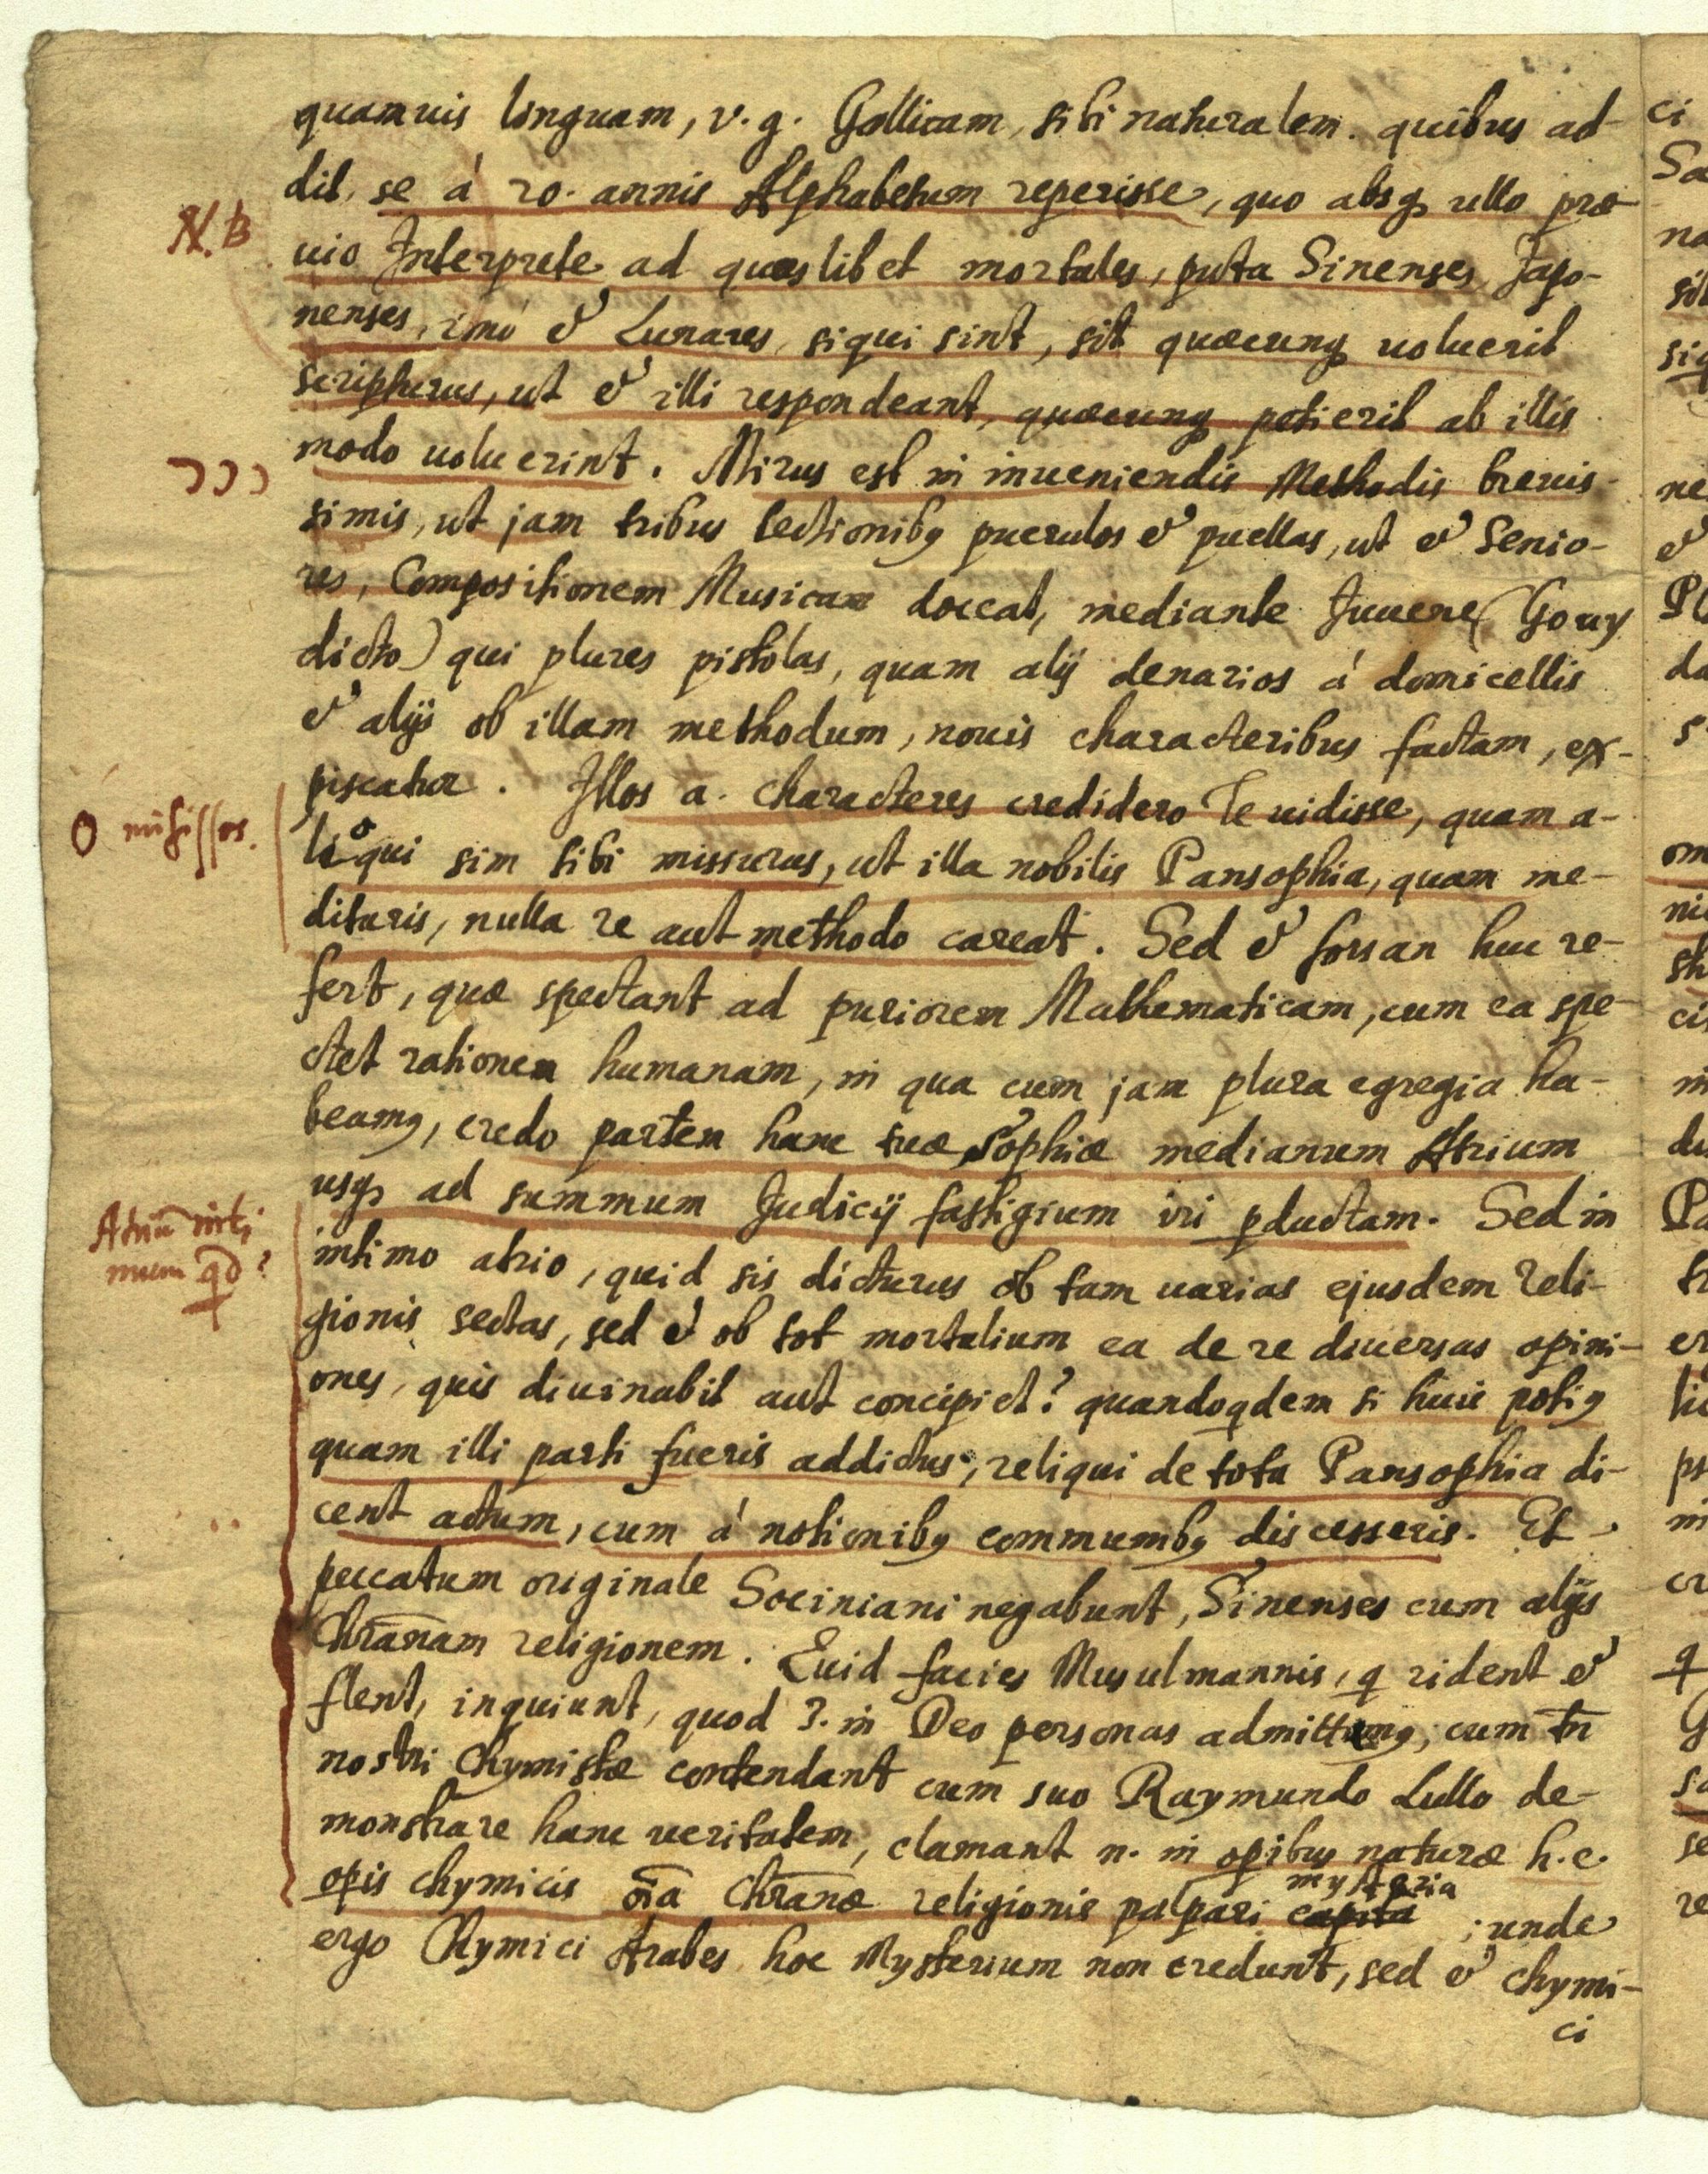 quamuis linguam, v.g. Gallicam, sibi naturalem. quibus ad-
dit, se à 20. annis Alphabetum reperisse, quo absq ullo præ-
N.B
uio Interprete ad quoslibet mortales, puta Sinenses, Japo-
nenses, imò & Lunares, siqui sint, sit quæcunq uoluerit
scripturus, ut & illi respondeant, quæcunq petierit ab illis
modo uoluerint. Mirus est in inueniendis Methodis breuis-
simis, ut jam tribus lectionibq puerulos & puellas, ut & Senio-
res, Compositionem Musicam doceat, mediante Juuene (Gouy
dicto) qui plures pistolas, quam alij denarios à domicellis
& alijs ob illam methodum, nouis characteribus factam, ex-
piscatur. Illos a. characteres credidero Te uidisse, quam a-
O misisses.
lioqui sim tibi missurus, ut illa nobilis Pansophia, quam me-
ditaris, nulla re aut methodo careat. Sed & forsan huc re-
fert, quæ spectant ad puriorem Mathematicam, cum ea spe-
ctet rationem humanam, in qua cum jam plura egregia ha-
beamq, credo partem hanc tuæ Sophiæ medianum Atrium
usq ad summum Judicij fastigium iri pductam. Sed in
Atriū inti
mum qd?
intimo atrio, quid sis dicturus ob tam uarias ejusdem Reli-
gionis sectas, sed & ob tot mortalium ea de re diuersas opini-
ones, quis diuinabit aut concipiet? quandoqdem si huic potiq
quam illi parti fueris addictus, reliqui de tota Pansophia di-
cent actum, cum à notionibq communibq discesseris. Et
peccatum originale Sociniani negabunt, Sinenses cum alijs
Chrānam religionem. Quid facies Musulmannis, q rident &
flent, inquiunt, quod 3. in Deo personas admittamq, cum tn̄
nostri Chymistæ contendant cum suo Raymundo Lullo de-
monstrare hanc ueritatem, clamant n. in opibus naturæ h.e.
opis chymicis oīa Chrānæ religionis palpari capita mysteria; unde
ergo Chymici Arabes hoc Mysterium non credunt, sed & chymi-
ci